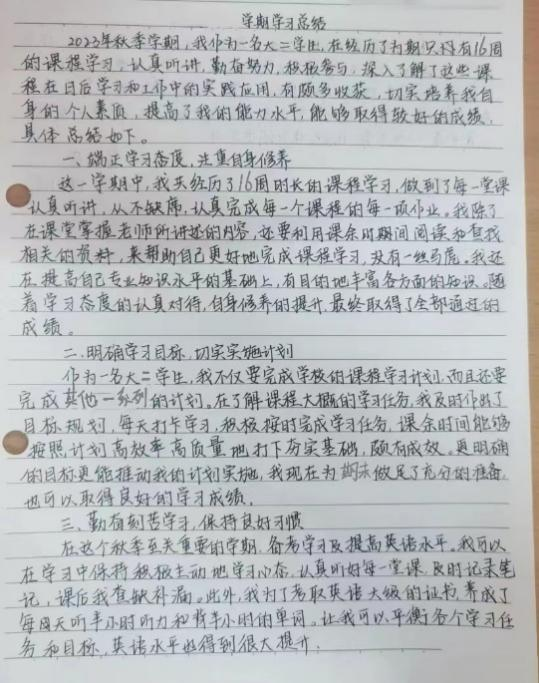 学期学习总结
2023年秋季学期，我作为一名大二学生，在经历了为期只得有16周
的课程学习，认真听讲，勤奋努力，积极参与，深入了解了这些课
程在日后学习和工作中的实践应用，有颇多收获，切实培养我自
身的个人素质，提高了我的能力水平，能够取得较好的成绩，
具体总结如下。
一、端正学习态度，注重自身修养
这一学期中，我共经历了16周时长的课程学习，做到了每一堂课
认真听讲，从不缺席，认真完成每一个课程的每一项作业。我除了
在课堂掌握老师所讲述的内容，还要利用课余时期间阅读和查找
相关的资料，来帮助自己更好地完成课程学习，没有一丝马虎。我还
在提高自己专业知识水平的基础上，有目的地丰富各方面的知识。随
着学习态度的认真对待，自身修养的提升，最终取得了全部通过的
成绩。
二、明确学习目标，切实实施计划
作为一名大二学生，我不仅要完成学校的课程学习计划，而且还要
完成其他一系列的计划。在了解课程大概的学习任务，我及时作出了
目标规划，每天打卡学习，积极按时完成学习任务，课余时间能够
按照计划高效率高质量地打下夯实基础，颇有成效。更明确
的目标更能推动我的计划实施，我现在为期末做足了充分的准备，
也可以取得良好的学习成绩。
三、勤奋刻苦学习，保持良好习惯
在这个秋季至关重要的学期，备考学习及提高英语水平。我可以
在学习中保持积极主动地学习心态，认真听好每一堂课，及时记录笔
记，课后我查缺补漏。此外，我为了考取英语六级的证书，养成了
每日天听半小时听力和背半小时的单词。让我可以平衡各个学习任
务和目标，英语水平也得到很大提升。